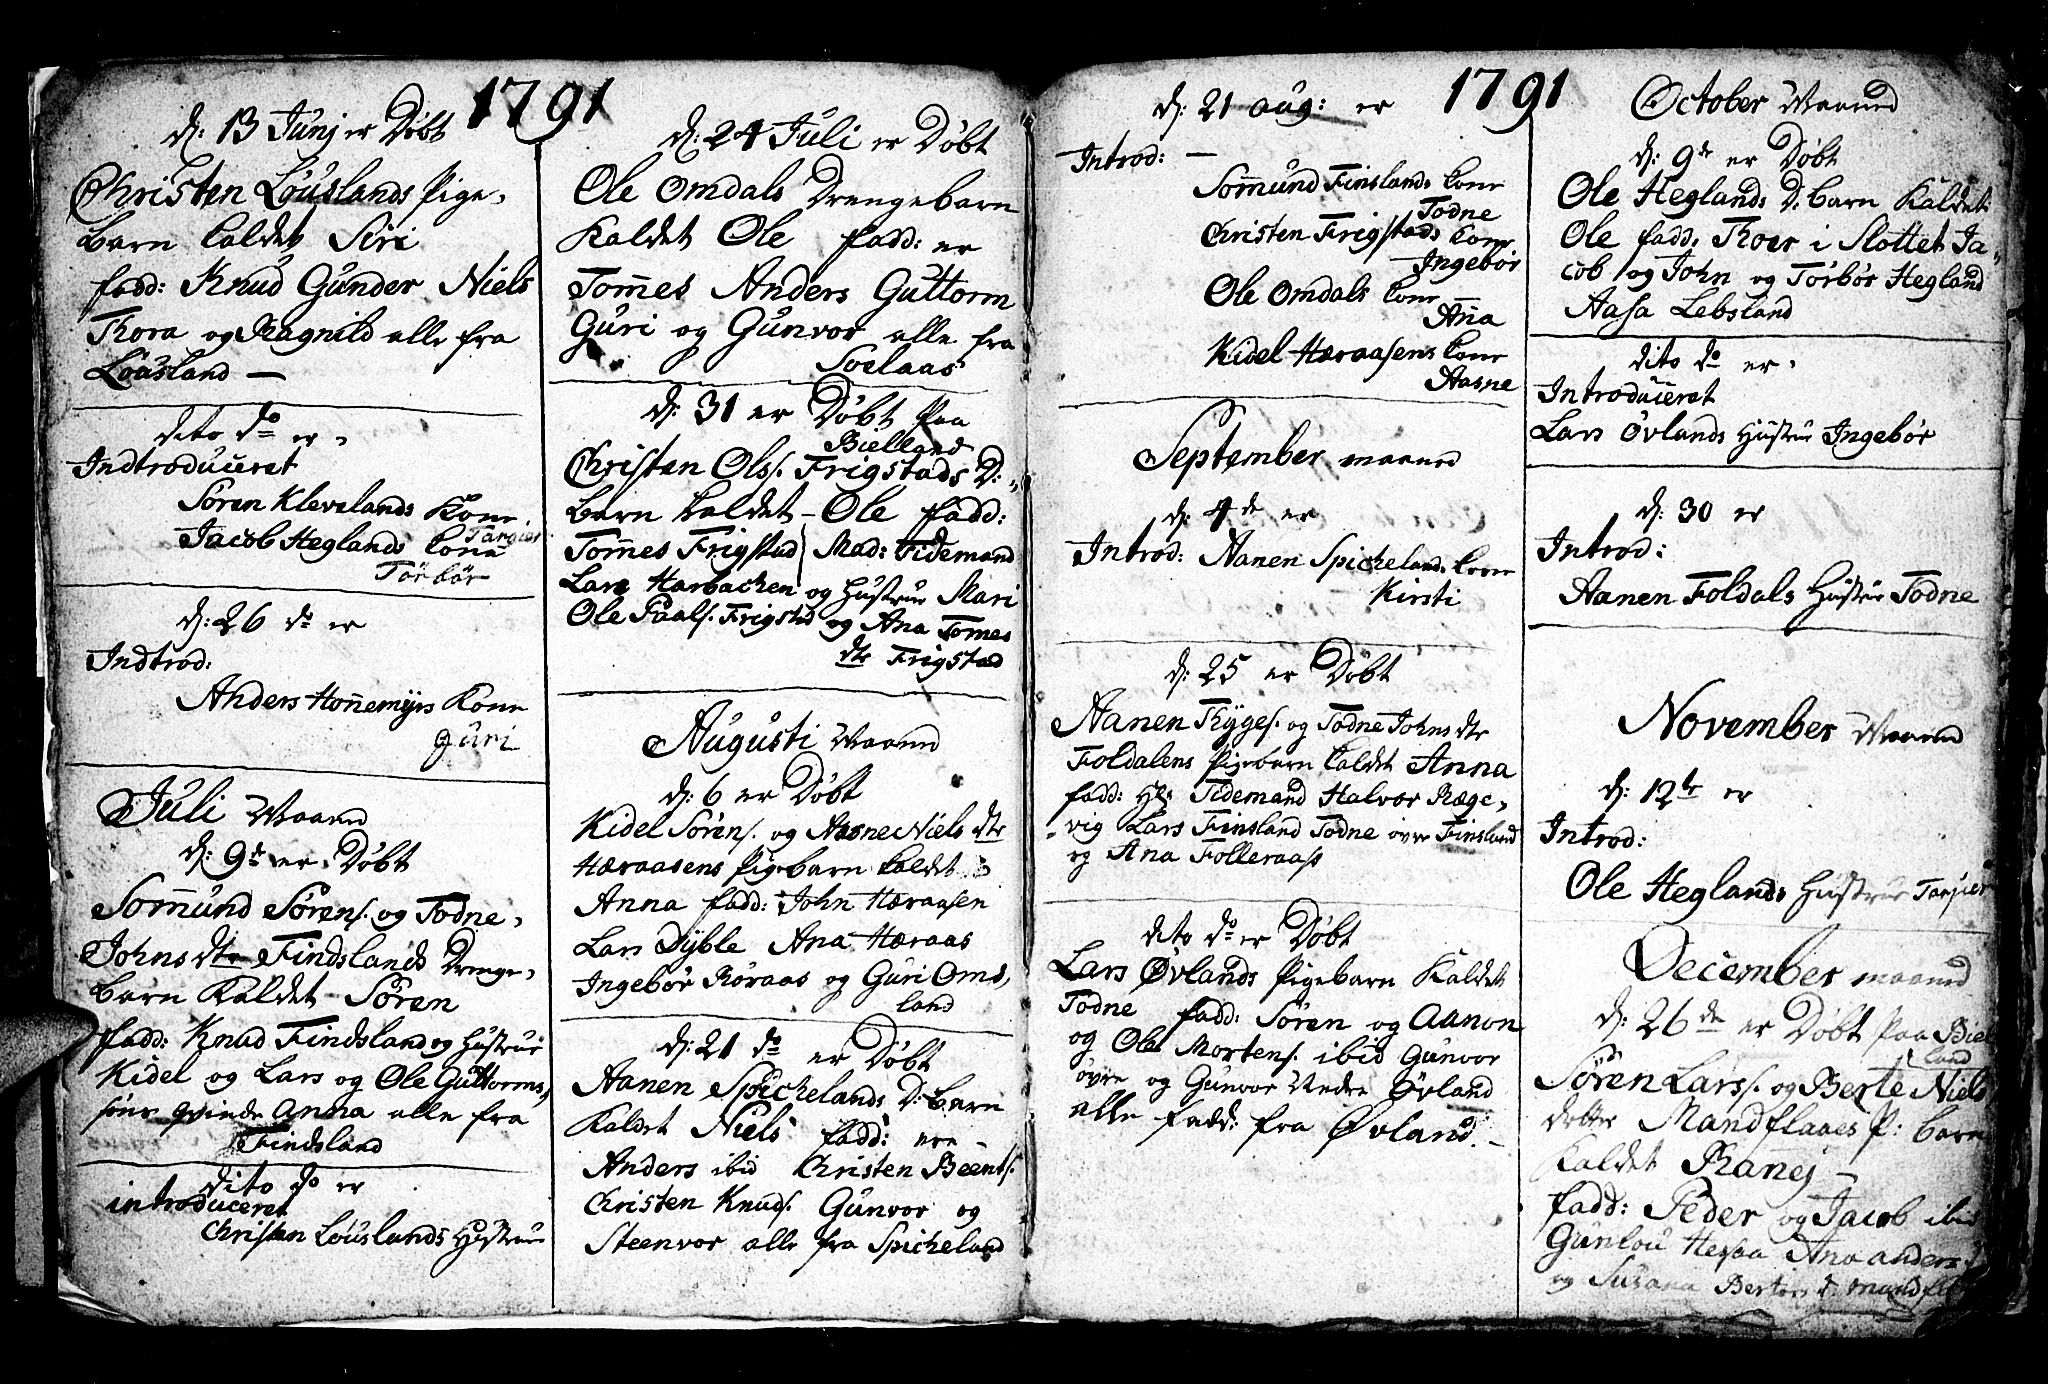 1791
d: 13 Junj er Døbt
Christen Løuslands Pige-
barn kaldet Siri
fadd: Knud Gunder Niels
Thora og Ragnild alle fra
Løusland —
dito do er
Indtroduceret
Søren Klevelands Kone
Targier
Jacob Heglands Kone
Torbør
d: 26 do er
Indtrod:
Anders Hon̄emyrs Kone
Guri
Juli Maaned
d: 9de er Døbt
Som̄und Sørens. og Todne
Johns dtr Findslands Drenge-
barn Kaldet Søren
fadd: Knud Findsland og Hustrue
Kidel og Lars og Ole Guttorms
søns qvinde Anna alle fra
Findsland
dito do er
introduceret
Christen Løuslands Hustrue
d: 24 Juli er Døbt
Ole Omdals Drengebarn
Kaldet Ole fadd: er
Tom̄es Anders Guttorm
Guri og Gunvor alle fra
Soelaas
d: 31 er Døbt paa
Bielland
Christen Olss. Frigstads D:
barn kaldet Ole fadd:
Tom̄es Frigstad Mad: Tidemand
Lars Harbachen og Hustrue Mari
Ole Paals. Frigsted og Ana Tomes
dtr Frigstad
Augusti Maaned
d: 6 er Døbt
Kidel Sørens. og Aasne Niels dtr
Hæraasens Pigebarn kaldet
Anna fadd: John Hæraasen
Lars Dyble Ana Hæraas
Ingebør Røraas og Guri Oms,
land
d: 21 do er Døbt
Aanen Spichelands D: Barn
Kaldet Niels fadd: ere
Anders ibid Christen Beents.
Christen Knuds. Gunvor og
Steenvor alle fra Spicheland
1791
d: 21 aug: er
Introd: —
Som̄und Finslands kone
Todne
Christen Frigstads kone
Ingebør
Ole Omdals kone
An̄a
Kidel Hæraasens kone
Aasne
September maaned
d: 4de er
Introd: Aanen Spichelands kone
Kirsti
d: 25 er Døbt
Aanen Thyges. og Todne Johns dtr
Foldalens Pigebarn kaldet Anna
fadd: Hr: Tidemand Halvor Ræge-
vig Lars Finsland Todne øvre Finsland
og Ana Folleraas
dito do er Døbt
Lars Øvlands Pigebarn Kaldet
Todne fadd: Søren og Aanon
og Ole Mortens. ibid Gunvor
øvre og Gunvor Nedre Øvland
alle fadd: fra Øvland. —
October Maaned
d: 9de er Døbt
Ole Heglands D: barn Kaldet
Ole fadd: Thoer i Slottet Ja-
cob og John og Torbør Hegland
Aasa Lebsland
dito do er
Introduceret
Lars Øvlands Hustrue Ingebør
d: 30 er
Introd:
Aanen Foldals Hustrue Todne
November Maaned
d: 12te er
Introd:
Ole Heglands Hustrue Targier
December maaned
d: 26de er Døbt Paa Biel
land
Søren Larss. og Berte Niels
dotter Mandflaaes P: barn
kaldet Ranej —
fadd: Peder og Jacob ibid
Gunlou Hessaa Ana anders
og Susana Berte